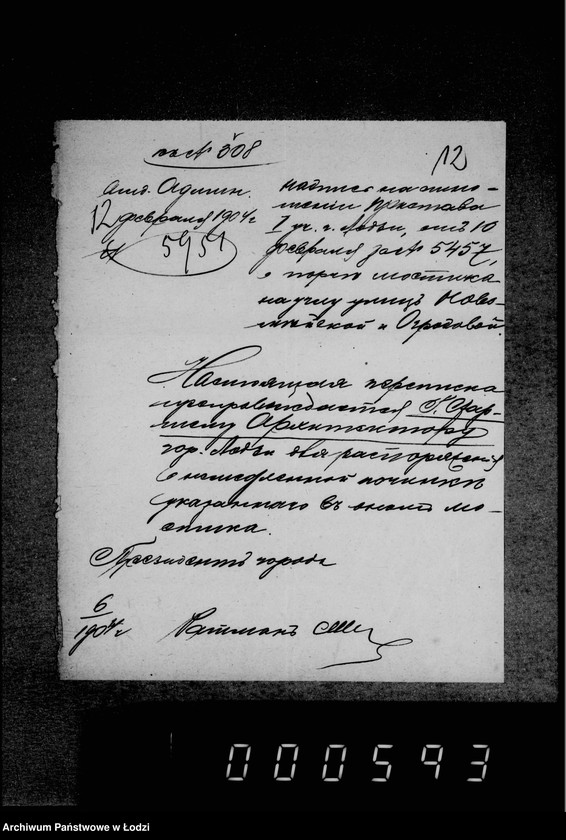 вх № 508
12
Отд. Админ.
12 февраля 1904 г
№ 5951
Надпись на отно-
шении Пристава
I уч. г. Лодзи, отъ 10
февраля за № 5457,
о порче мостика
на углу улицъ Ново-
мейской и Огродовой.
Настоящая переписка
препровождается Г. Стар-
шему Архитектору
гор. Лодзи для распоряжения
о немедленной починке
указанного въ ней мо-
стика.
Президентъ города
6
1904 г
000593
Archiwum Państwowe w Łodzi